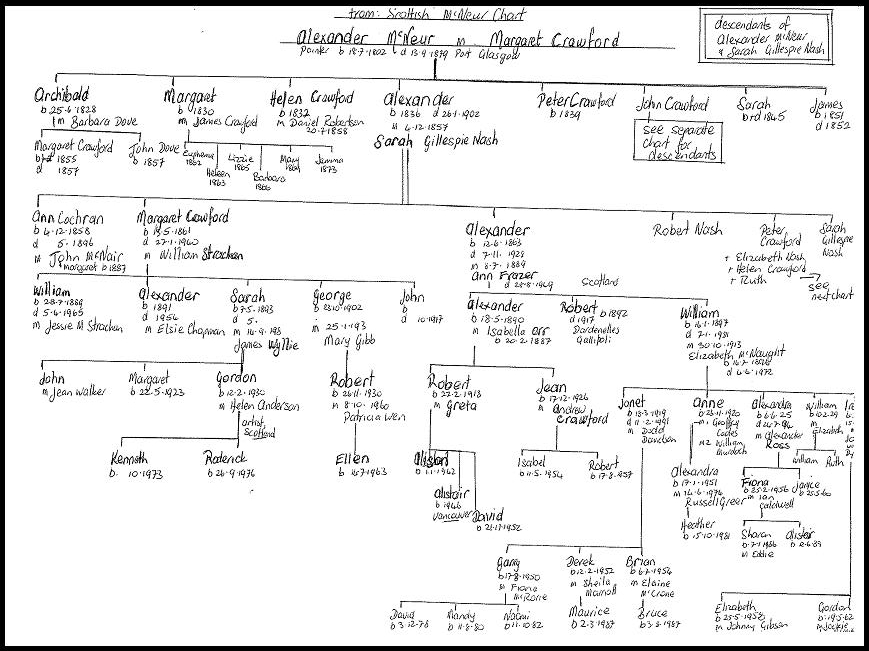 from: Scottish McNeur Chart
Alexander McNeur m Margaret Crawford
Painter b 18.7.1802 d 13.9.1879 Port Glasgow
descendants of
Alexander McNeur
& Sarah Gillespie Nash
Archibald
b 25.6.1828
m Barbara Dove
Margaret
b 1830
m James Crawford
Helen Crawford
b 1832
m Daniel Robertson
20.7.1858
Alexander
b 1836 d 26.1.1902
m 4.12.1857
Sarah Gillespie Nash
Peter Crawford
b 1839
John Crawford
see separate
chart for
descendants
Sarah
b+d 1845
James
b 1851
d 1852
Margaret Crawford
1855
d 1857
John Dove
b 1857
Euphemia
1862
Heleen
1863
Lizzie
1865
Barbara
1866
Mary
Jemima
1873
Ann Cochran
b 4.12.1858
d 5.1896
m John McNair
Margaret b 1887
Margaret Crawford
1861
d 27.1.1940
m William Strachan
Alexander
b 12.6.1863
d 7.11.1929
m 8.7.1889
Ann Frazer
d 1949
Scotland
Robert Nash
Peter
Crawford
+ Elizabeth Nash
+ Helen Crawford
+ Ruth
see
next chart
Sarah
Gillespie
Nash
William
b 28.7.1889
d 5.4.1965
m Jessie M Strachan
Alexander
b 1891
d 1954
m Elsie Chapman
Sarah
b 7.5.1893
d 5.
m 14.9.193
James Wyllie
George
b 1902
m 25.1.193
Mary Gibb
John
b
d 10.1917
Alexander
b 18.5.1890
m Isabella Orr
b 20.2.1887
Robert b 1892
d 1917
Dardenelles
Gallipoli
William
b 1897
d 7.1.1981
m 30.10.1913
Elizabeth McNaught
d 6.6.1972
John
m Jean Walker
Margaret
b 22.5.1923
Gordon
b 12.2.1930
m Helen Anderson
artist,
Scotland
Robert
b 26.11.1930
m 8.10.1960
Patricia Wein
Robert
b 22.2.1918
m Greta
Jean
b 17.12.1926
m Andrew
Crawford
Janet
b 18.3.1919
d 11.2.1991
m Dodd
Davidson
Anne
b 1920
m1 Geoffrey
m2 William
Murdoch
Alexandra
b 6.6.25
m Alexander
Ross
William
b 10.2.29
m
Elizabeth
William
Ruth
Kenneth
b. 10.1973
Roderick
b 26.9.1976
Ellen
b 1963
Alison
b 1.1.1942
Alistair
b 1946
Vancouver
David
b 21.11.1952
Isabel
b 11.5.1954
Robert
b 17.8.1957
Alexandra
b 17.1.1951
m 14.6.1976
Russell Greer
Heather
b 15.10.1981
Fiona
b 25.2.1956
m Ian
Janice
b 25.5.60
Sharan
m Eddie
Alistair
Garry
b 17.8.1950
m Fiona
Derek
b 12.2.1952
m Sheila
Brian
b 6.7.1954
m Elaine
McCrone
David
b 3.12.78
Mandy
b 11.8.80
Naomi
b 11.10.82
Maurice
b 2.3.1987
Bruce
b 3.8.1987
Elizabeth
b 25.5.1958
m Johnny Gibson
Gordon
b. 19.5.62
m Jackie